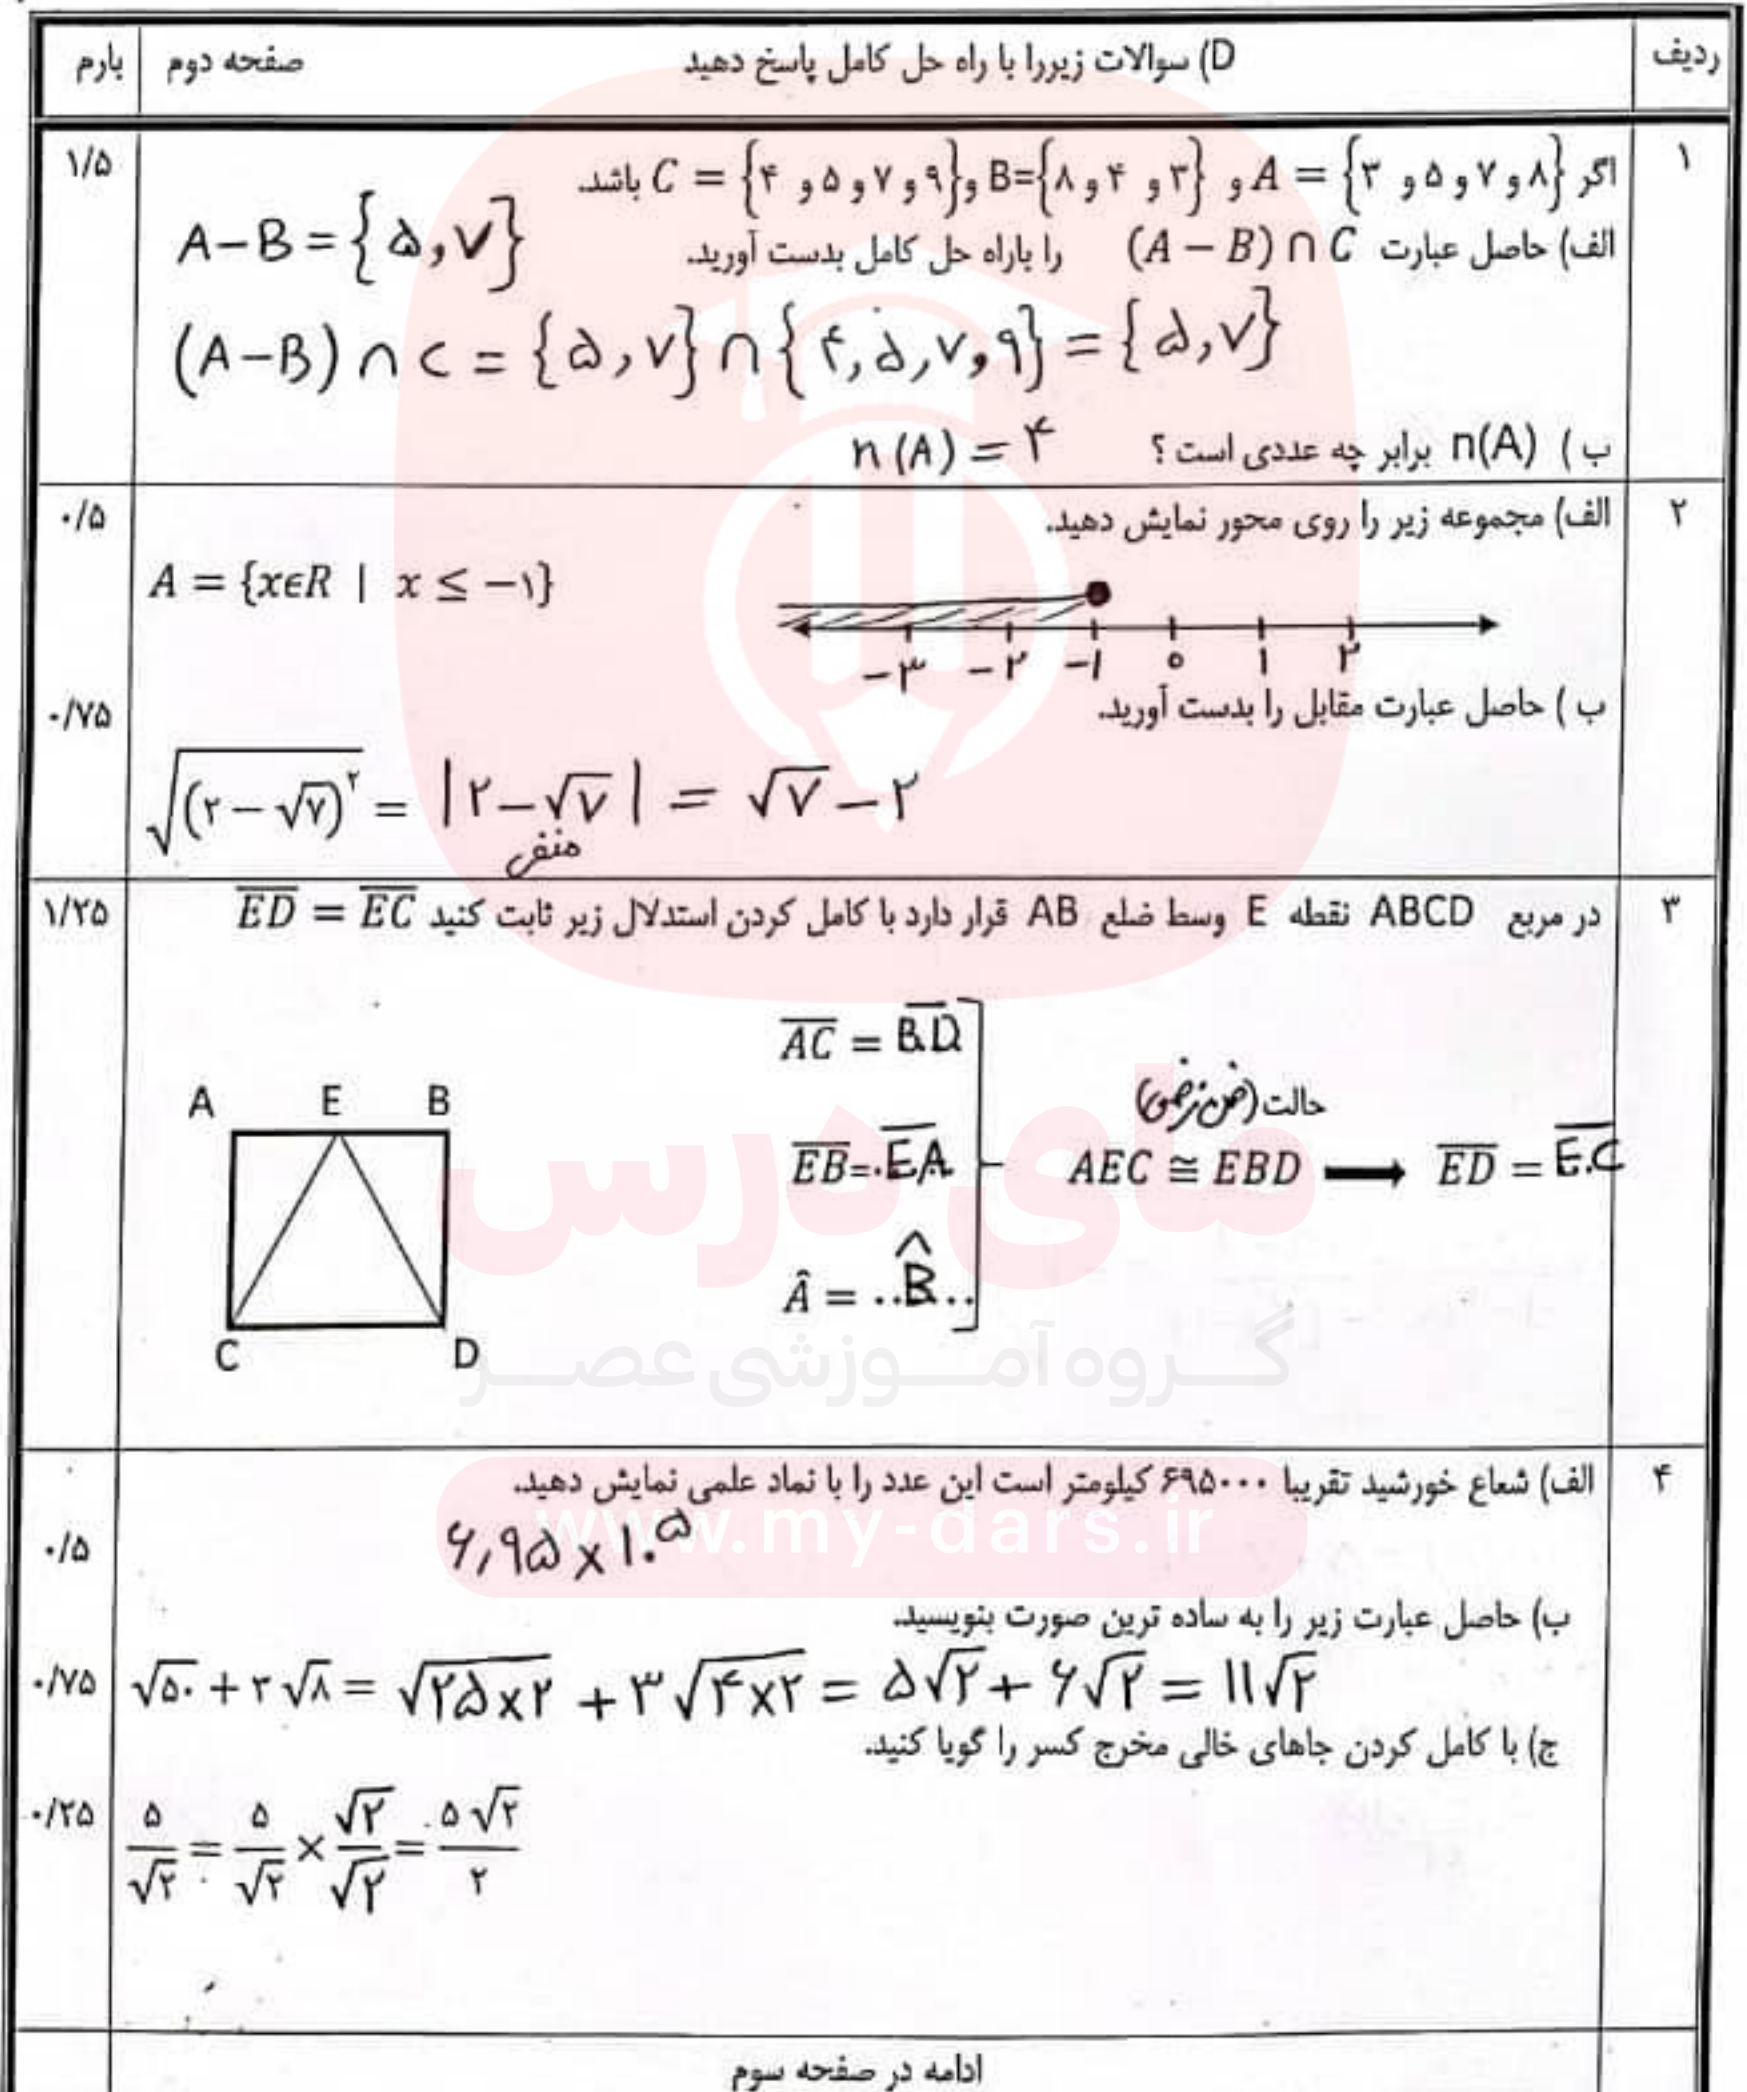 ردیف D) سوالات زیررا با راه حل کامل پاسخ دهید صفحه دوم بارم
۱ اگر A = {۳ و ۵ و ۷ و ۸} و B={۳ و ۴ و ۸} و C = {۴ و ۵ و ۷ و ۹} باشد. ۱/۵
الف) حاصل عبارت (A − B) ∩ C را باراه حل کامل بدست آورید.
A−B = {۵,۷}
(A−B) ∩ C = {۵,۷} ∩ {۴,۵,۷,۹} = {۵,۷}
ب ) n(A) برابر چه عددی است ؟ n(A) = ۴
۲ الف) مجموعه زیر را روی محور نمایش دهید. ۰/۵
A = {xϵR | x ≤ −۱}
−۳ −۲ −۱ ۰ ۱ ۲
ب ) حاصل عبارت مقابل را بدست آورید. ۰/۷۵
√(۲ − √۷)² = |۲−√۷| = √۷ − ۲
منفی
۳ در مربع ABCD نقطه E وسط ضلع AB قرار دارد با کامل کردن استدلال زیر ثابت کنید E̅D̅ = E̅C̅ ۱/۲۵
A̅C̅ = B̅D̅
A E B
حالت (ض ز ض)
E̅B̅ = E̅A̅
AEC ≅ EBD ⟶ E̅D̅ = E̅.C̅
Â = ..B̂..
C D
۴ الف) شعاع خورشید تقریبا ۶۹۵۰۰۰ کیلومتر است این عدد را با نماد علمی نمایش دهید.
۶,۹۵ × ۱۰⁵ ۰/۵
ب) حاصل عبارت زیر را به ساده ترین صورت بنویسید.
√۵۰ + ۳√۸ = √۲۵×۲ + ۳√۴×۲ = ۵√۲ + ۶√۲ = ۱۱√۲ ۰/۷۵
ج) با کامل کردن جاهای خالی مخرج کسر را گویا کنید.
۵/√۲ = ۵/√۲ × √۲/√۲ = ۵√۲/۲ ۰/۲۵
ادامه در صفحه سوم
مای درس
گروه آموزشی عصر
www.my-dars.ir